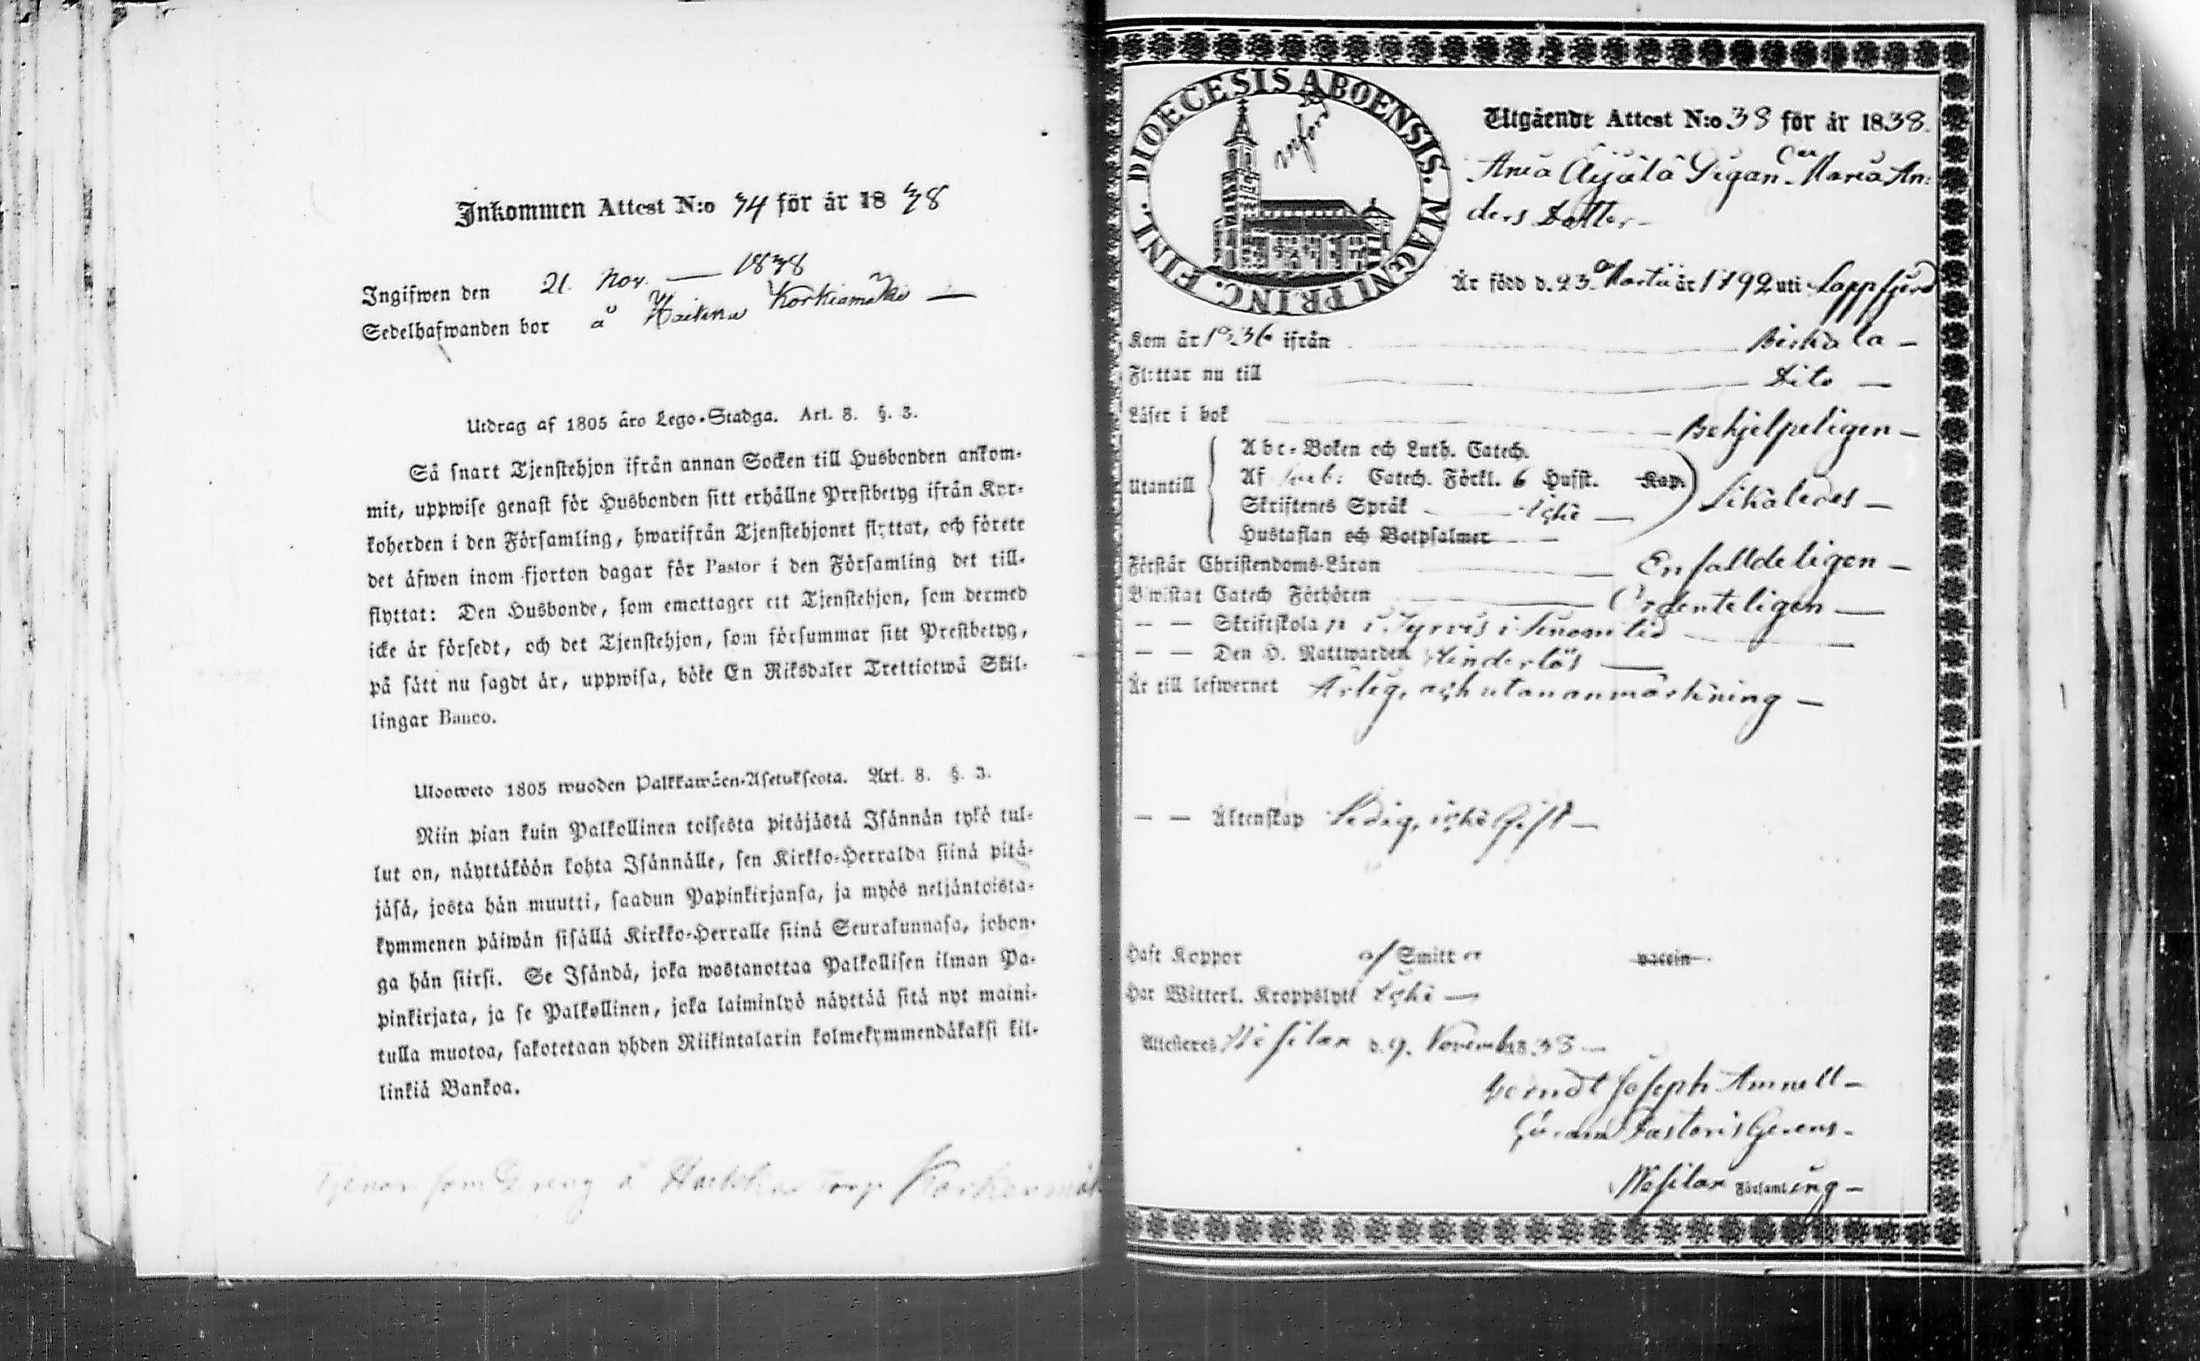 Inkommen Attest N:o 74 för år 1838
Ingifwen den 21. Nov. — 1838
Sedelhafwanden bor å Korkiamäki —
Utdrag af 1805 års Lego-Stadga. Art. 8. §. 3.
Så snart Tjenstehjon ifrån annan Socken till Husbonden ankom-
mit, uppwise genast för Husbonden sitt erhållne Prestbetyg ifrån Kyr-
koherden i den Församling, hwarifrån Tjenstehjonet flyttat, och förete
det äfwen inom fjorton dagar för Pastor i den Församling det till-
flyttat: Den Husbonde, som emottager ett Tjenstehjon, som dermed
icke är försedt, och det Tjenstehjon, som försummar sitt Prestbetyg,
på sätt nu sagdt är, uppwisa, böte En Riksdaler Trettiotwå Skil-
lingar Banco.
Ulosweto 1805 wuoden Palkkawäen-Asetuksesta. Art. 8. §. 3.
Niin pian kuin Palkollinen toisesta pitäjästä Isännän tykö tul-
lut on, näyttäköön kohta Isännälle, sen Kirkko-Herralda siinä pitä-
jäsä, josta hän muutti, saadun Papinkirjansa, ja myös neljäntoista-
kymmenen päiwän sisällä Kirkko-Herralle siinä Seurakunnasa, johon-
ga hän siirsi. Se Isändä, joka wastanottaa Palkollisen ilman Pa-
pinkirjata, ja se Palkollinen, joka laiminlyö näyttää sitä nyt maini-
tulla muotoa, sakotetaan yhden Riikintalarin kolmekymmendäkaksi kil-
linkiä Bankoa.
som Dreng å torp
DIOECESIS ABOENSIS. MAGNI PRINC. FINL.
införd
Utgåendt Attest N:o 38 för år 1838.
Äijälä Pigan Maria An-
ders Dotter —
Är född d. 23 Martii år 1792 uti Lappfjerd
Kom år 1836 ifrån Birkala —
Flyttar nu till Dito —
Läser i bok Behjelpeligen —
Utantill
Abc-Boken och Luth. Catech.
Af Catech. Förkl. 6 Hufst. Kap.
Skriftenes Språk —
Hustaflan och Botpsalmer
Likaledes —
Förstår Christendoms-Läran Enfalldeligen —
Biwistat Catech Förhören Ordenteligen —
— — Skriftskola i Tyrvis i
— — Den H. Nattwarden
Är till lefwernet Ärlig, och utan anmärkning —
— — Äktenskap Ledig, icke Gift —
Haft Koppor af Smitta vaccin
Har Witterl. Kroppslyte Icke —
Attesteras Wesilax d. 9. November 1838 —
Berndt Joseph Amnell —
Pastoris Gerens.
Wesilax Församling —